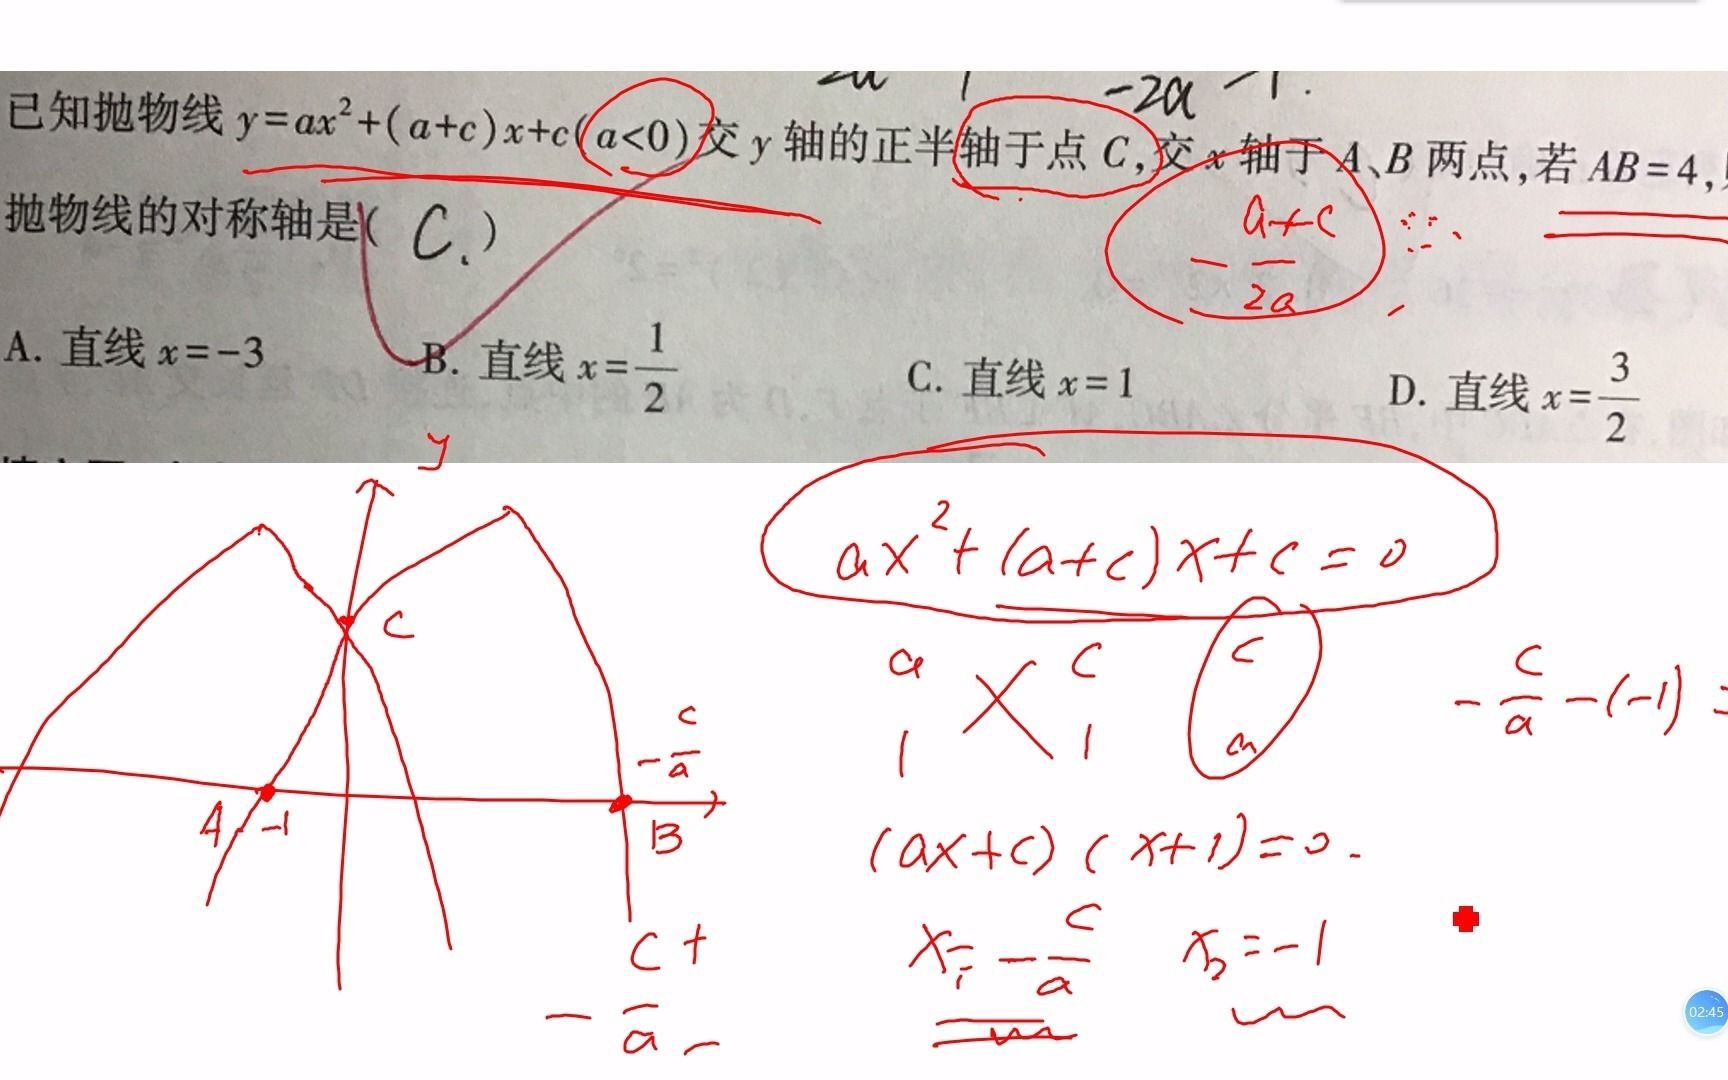 -2a -1.
已知抛物线 y=ax²+(a+c)x+c(a<0)交 y 轴的正半轴于点 C,交 x 轴于 A、B 两点,若 AB=4,
抛物线的对称轴是( C. )
- a+c / 2a
A. 直线 x=-3 B. 直线 x=1/2 C. 直线 x=1 D. 直线 x=3/2
y
ax²+(a+c)x+c=0
C
a c c
1 1 a
- c/a - (-1) =
- c/a
A -1 B
(ax+c)(x+1)=0.
x₁= - c/a x₂=-1
c +
- a -
02:45